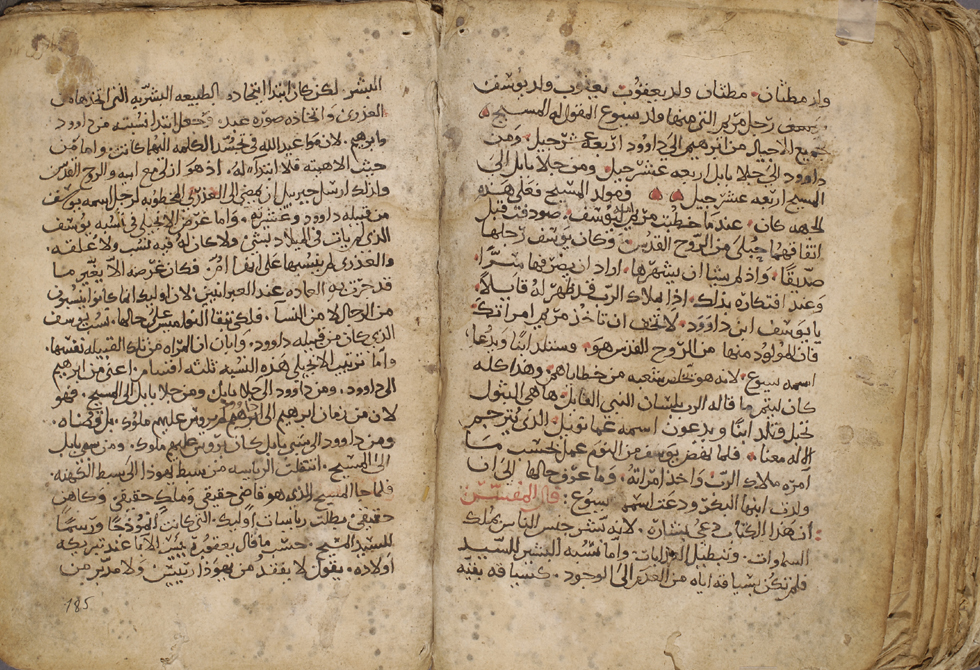 ولد مطثان مطثان ولد يعقوب يعقوب ولد يوسف
رجل مريم التي منها ولد يسوع المقول له المسيح
جميع الاجيال من ابرهيم الى داوود اربعة عشر جيل ومن
داوود الى جلا بابل اربعه عشر جيل ومن جلا بابل الى
المسيح اربعه عشر جيل فمولد المسيح فعلى هذه
الجهه كان عندما خطبت مريم امه ليوسف صودفت قبل
اتفاقهما حبلى من الروح القدس وكان يوسف رجلها
صديقا واذ لم يشا ان يشهرها اراد ان يصرفها سرا
وعند افتكاره بذلك اذا ملاك الرب قد ظهر له قايلا
يا يوسف ابن داوود لا تخف ان تاخذ مريم امراتك
فان المولود منها من الروح القدس هو وستلد ابنا ويدعا
اسمه يسوع لانه هو يخلص شعبه من خطاياهم وهذا كله
كان ليتم ما قاله الرب بلسان النبي القايل ها هي البتول
تحبل وتلد ابنا ويدعون اسمه عمانويل الذي يترجم
الاله معنا فلما نهض يوسف من النوم عمل حسب ما
امره ملاك الرب واخذ امراته وما عرف حالها الى ان
ولدت ابنها البكر ودعت اسمه يسوع قال المفسر
ان هذا الكتاب دعي بشاره لانه يبشر جنس الناس بملك
السماوات وتبطيل واما نسبة البشير للسيد
فلم تكن بسياقه اياه من العدم الى الوجود كسياقه بقية
البشر لكن كان ابتدا اتحاده بالطبيعه البشريه التي اتخذها من
العذرى واتخاذه صورة عبد وجعل ابتدا نسبته من داوود
وابرهيم لان لفظة عبد الله في تجسد الكلمه اليهما كانت واما من
حيث الاهيته فلا ابتدا له اذ هو ازلي مع ابيه والروح القدس
ولذلك ارسل جبريل ان يمضي الى العذرى المخطوبه لرجل اسمه يوسف
من قبيلة داوود وعشيرته واما غرض الانجيلي في نسبه يوسف
الذي لم يات في الميلاد بشي ولا كان له فيه سبب ولا علقه
والعذرى لم ينسبها على انها ام فكان غرضه الا يغير ما
قد جرت به العاده عند العبرانيين لان اوليك انما كانوا ينسبون
من الرجال لا من النسا فلكي تبقا النواميس على حالها نسب يوسف
الذي كان من قبيلة داوود وابان ان المراه من تلك القبيله نفسها
واما ترتيب الانجيلي هذه النسبه ثلثه اقسام اعني من ابرهيم
الى داوود ومن داوود الى جلا بابل ومن جلا بابل الى المسيح فهو
لان من زمان ابرهيم الى داوود لم يروس عليهم ملوك بل قضاه
ومن داوود الى سبي بابل كان يروس عليهم ملوك ومن سبي بابل
الى المسيح انتقلت الرياسه من سبط يهوذا الى سبط الكهنه
فلما جا المسيح الذي هو قاضي حقيقي وملك حقيقي وكاهن
حقيقي بطلت رياسات اوليك التي كانت انموذجا ورسما
للسيد المسيح حسب ما قال يعقوب ريس الابا عند تبريكه
اولاده يقول لا يفقد من يهوذا رييس ولا مدبر من
185